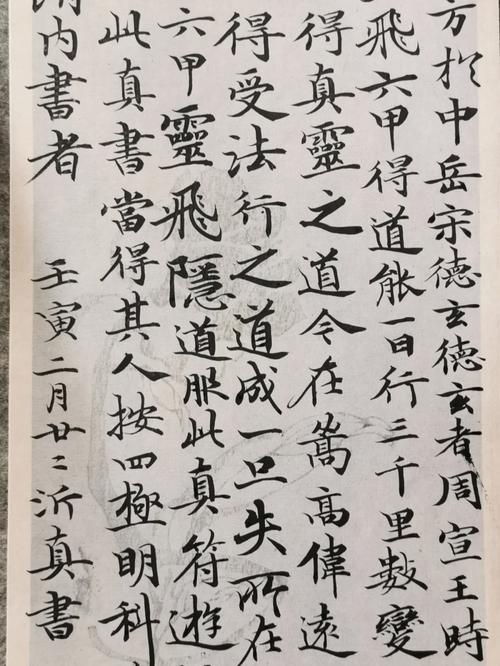 方扵中岳宋德玄德玄者周宣王時
飛六甲得道能一日行三千里數變
得真靈之道今在嵩高偉遠
得受法行之道成一旦失所在
六甲靈飛隱道服此真符遊
此真書當得其人按四極明科
內書者 壬寅二月廿二沂真書